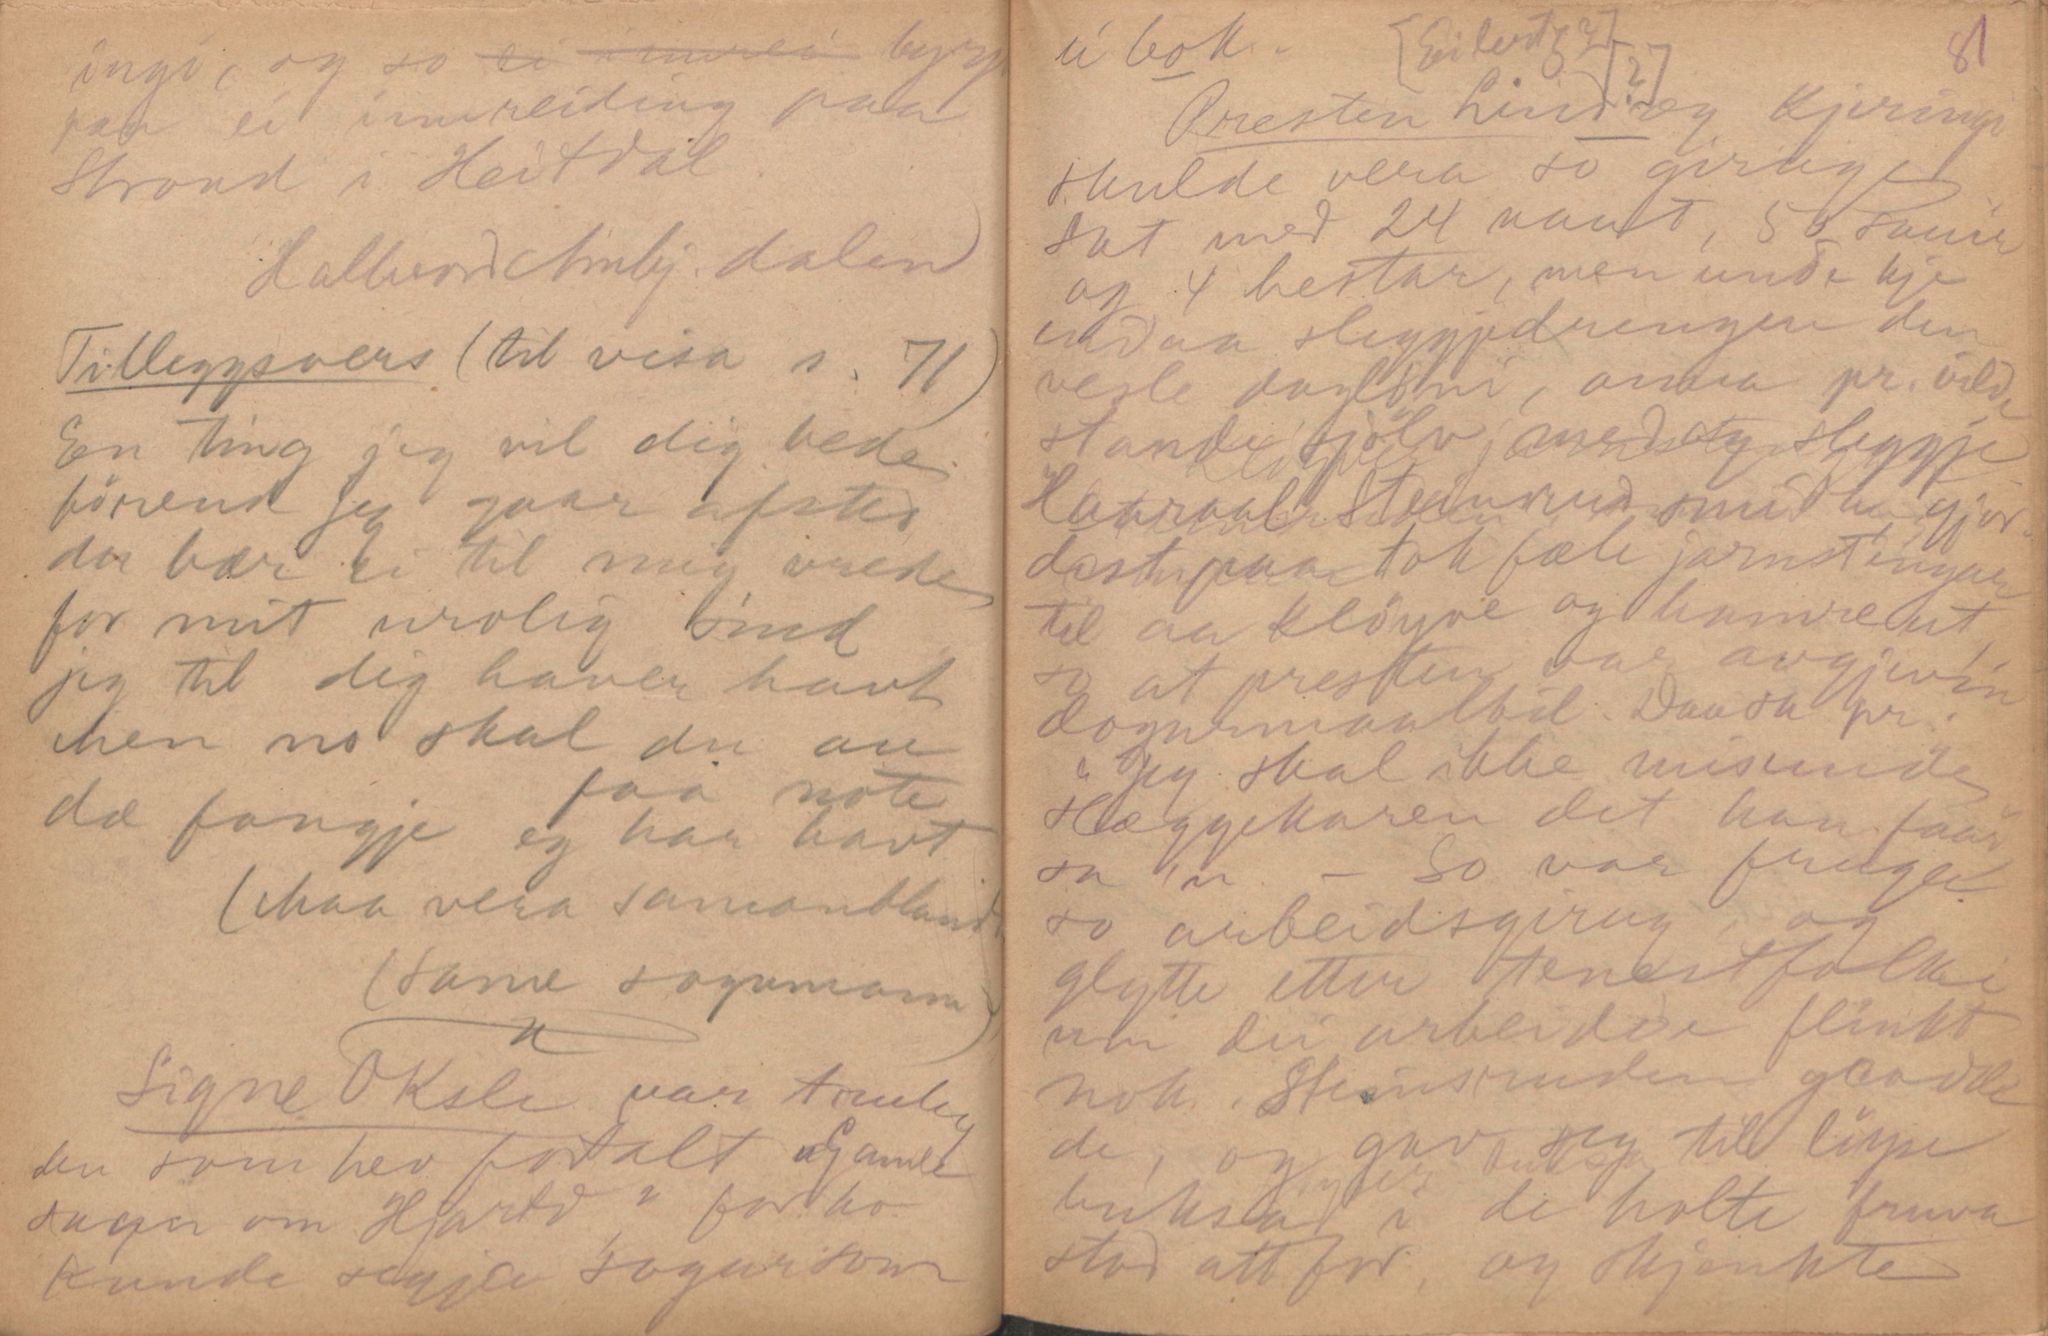 ingi, og so ei innrei bygg
paa ei innreiding paa
Strond i Heitdal.
Hallvord dalen
Tilleggsvers (til visa s. 71)
En ting jeg vil dig bede
förend jeg gaar afsted
du bær ei til mig vrede
for mit urolig sind
jeg til dig haver havt
men no skal du au
faa note
dæ fangje eg har havt
(maa vera samanbland
(same sogumann)
Signe Oksle var
den som hev fortalt "Gamle
sagu om Hjartd" for ho
kunde segje sogur som
ei bok.
[Eilert ?]
[?]
81
Presten Lind og kjeringi
skulde vera so giruge
Sat med 24 naut, 50 sauir
og 4 hestar, men unde kje
endaa sleggjedrengen den
vesle dagløni, anna pr. vilde
stande sjölv med sleggje
Haavaal Steinsrud smid
tok fæle jarnstengar
til aa klöyve og hamre ut,
so at presten var avgjevin
dogurmaalbil. Daa sa pr.
"Jeg skal ikke misunde
slæggekaren det han faar
sa 'n. – So var fruga
so arbeidsgirug, og
glytte etter tenestfolki
um dei arbeidde flinkt
nok. Steinsruden
de, og gav seg til
buksa i de holte fruva
stod attfor, og skjenkte